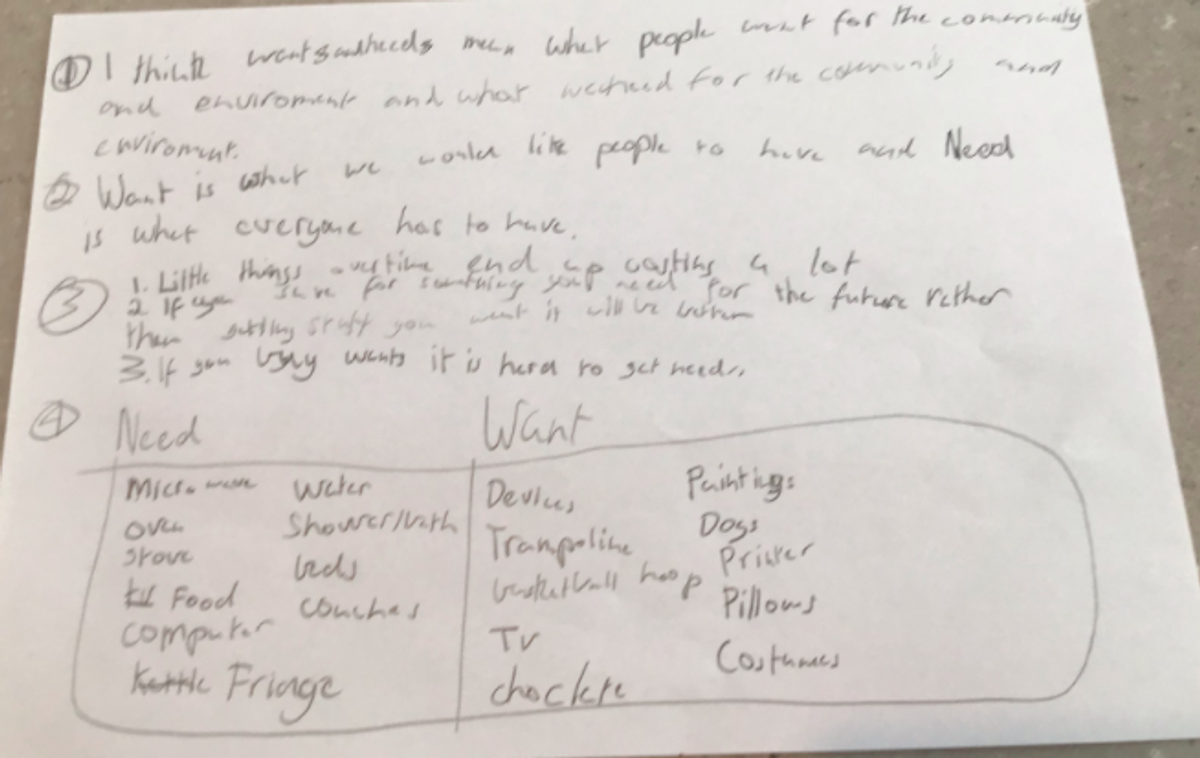 ① I think wants and needs mean what people want for the community
and enviroment and what we need for the community and
enviroment.
② Want is what we would like people to have and Need
is what everyone has to have.
③ 1. Little things overtime end up costing a lot
2 If you save for something you need for the future rather
than getting stuff you want it will be
3. If you buy wants it is hard to get needs.
④ Need Want
Microwave Water Devices Paintings
Oven Shower/bath Trampoline Dogs
Stove beds basketball hoop Printer
Food Couches Pillows
Computer TV Costumes
Kettle Fridge choclete